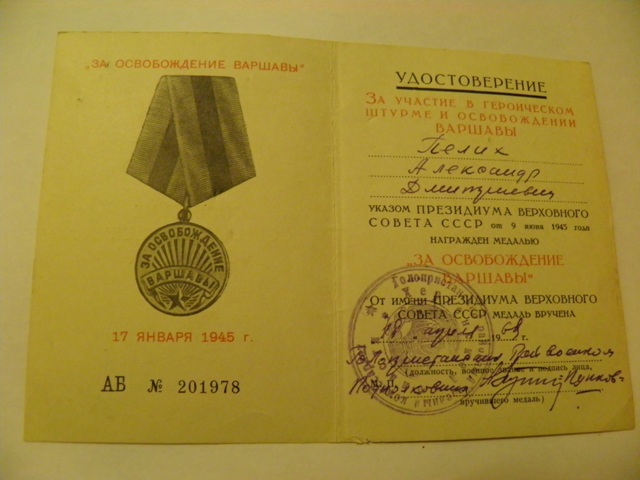 „ЗА ОСВОБОЖДЕНИЕ ВАРШАВЫ“
ЗА ОСВОБОЖДЕНИЕ
ВАРШАВЫ
17 ЯНВАРЯ 1945 г.
АБ № 201978
УДОСТОВЕРЕНИЕ
ЗА УЧАСТИЕ В ГЕРОИЧЕСКОМ
ШТУРМЕ И ОСВОБОЖДЕНИИ
ВАРШАВЫ
Пелих
Александр
Дмитриевич
УКАЗОМ ПРЕЗИДИУМА ВЕРХОВНОГО
СОВЕТА СССР от 9 июня 1945 года
НАГРАЖДЕН МЕДАЛЬЮ
„ЗА ОСВОБОЖДЕНИЕ
ВАРШАВЫ“
От имени ПРЕЗИДИУМА ВЕРХОВНОГО
СОВЕТА СССР МЕДАЛЬ ВРУЧЕНА
18 апреля 1968 г.
(должность, военное звание и подпись лица,
вручившего медаль)